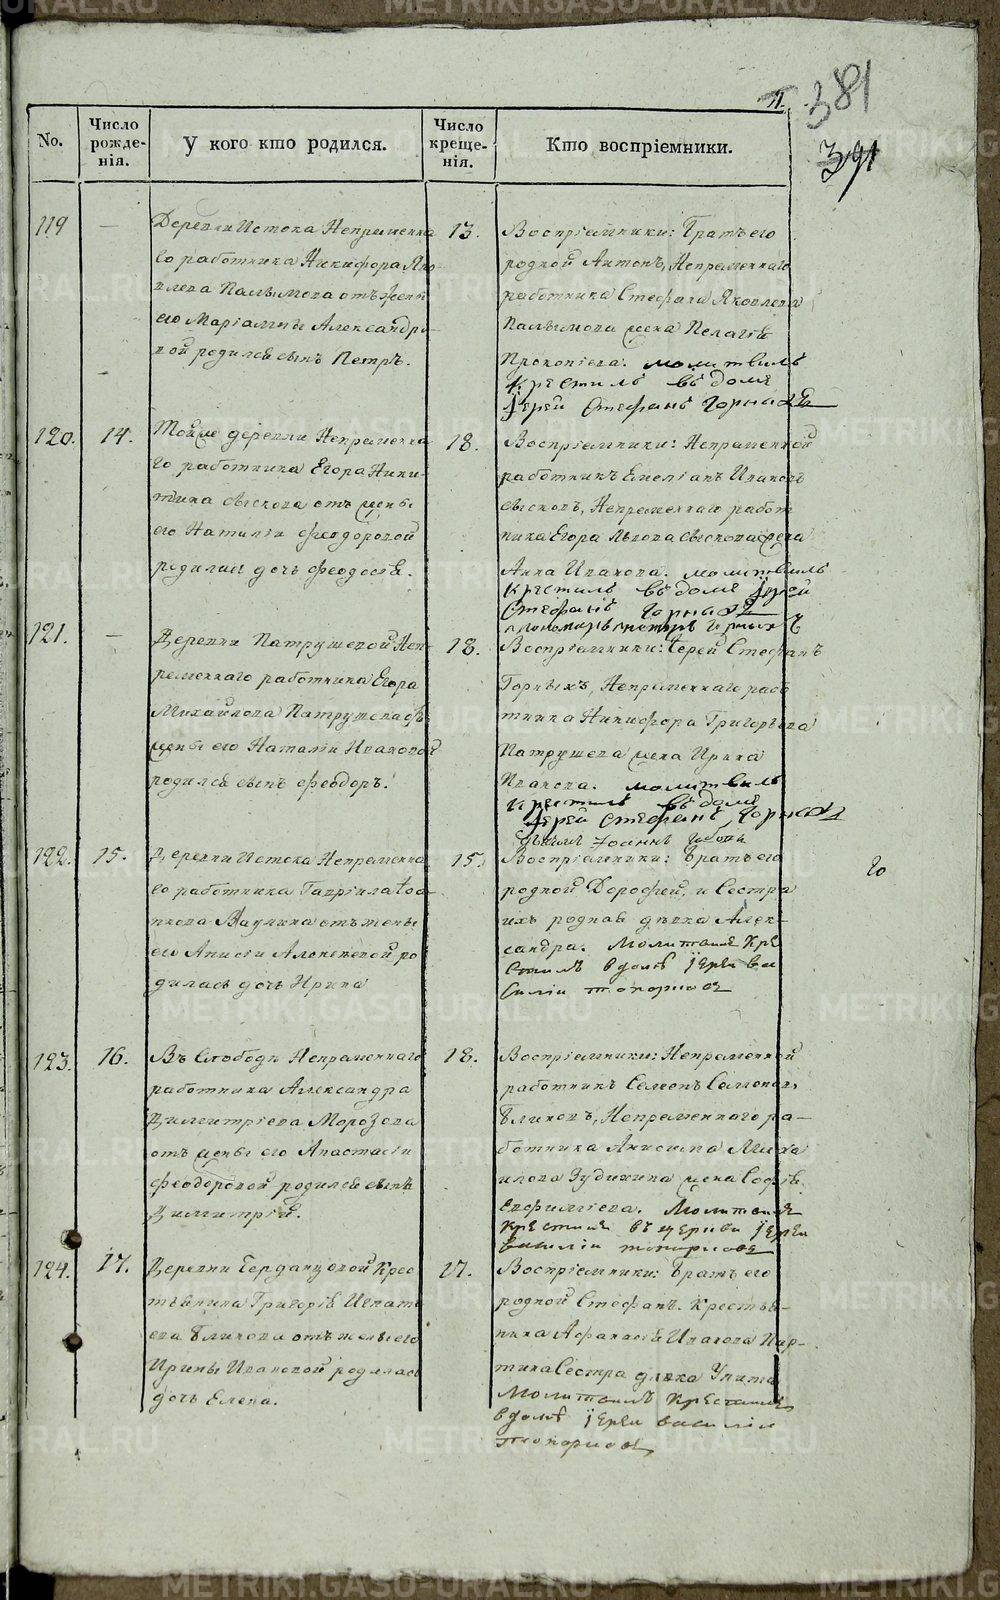 381
391
No.
Число рожде-нія.
У кого кто родился.
Число креще-нія.
Кто воспріемники.
119
—
Деревни Истока Непременна
го работника Никифора Яко-
влева Пальмова отъ жены
его Маріамны Александро-
вой родился сынъ Петръ.
13.
Воспріемники: Братъ его
родной Антонъ, Непременнаго
работника Стефана Яковлева
Пальмова жена Пелагія
Прокопіева. молитвилъ
Крестилъ въ доме
Іерей Стефанъ Горныхъ
120.
14.
Той же деревни Непременна
го работника Егора Ники-
тина Сыскова отъ жены
его Наталіи Феодоровой
родилась дочь Феодосія.
18.
Воспріемники: Непременной
работникъ Емеліанъ Ивановъ
Сысковъ, Непременнаго работ
ника Егора Львова Сыскова жена
Анна Иванова. молитвилъ
Крестилъ въ доме Іерей
Стефанъ Горныхъ
пономарь Петръ Горныхъ
121.
—
Деревни Патрушевой Неп-
ременнаго работника Егора
Михайлова Патрушева отъ
жены его Наталіи Ивановой
родился сынъ Феодоръ.
18.
Воспріемники: Іерей Стефанъ
Горныхъ, Непременнаго рабо
тника Никифора Григорьева
Патрушева жена Ирина
Иванова. молитвилъ
Крестилъ въ доме
Іерей Стефанъ Горныхъ
Іоаннъ
122.
15.
Деревни Истока Непременна
го работника Гавріила Іоа-
ннова Ваулина отъ жены
его Анисіи Алексеевой ро
дилась дочь Ирина
15.
Воспріемники: Братъ его
родной Дорофей, и Сестра
ихъ родная девка Алек-
сандра. Молитвилъ Кре
стилъ в доме іерей Ва
силіи Топорковъ
123.
16.
Въ Слободе Непременнаго
работника Александра
Димитріева Морозова
отъ жены его Анастасіи
Феодоровой родился сынъ
Димитрій.
18.
Воспріемники: Непременной
работникъ Семенъ Самоновъ
Блиновъ, Непременного ра-
ботника Анисима Миха
илова Зудихина жена Софія
Евфиміева. Молитвилъ
Крестилъ въ церкви іереи
Василіи Топорковъ
124.
17.
Деревни Бердянцовой Крес
тьянина Григорія Игнать
ева Блинова отъ жены его
Ирины Ивановой родилась
дочь Елена.
17.
Воспріемники: Братъ его
родной Стефанъ. Крестья-
нина Афанасія Иванова Мар-
тина Сестра девка Улита
Молитвилъ Крестилъ
в доме іереи Василіи
Топорковъ
METRIKI.GASO-URAL.RU